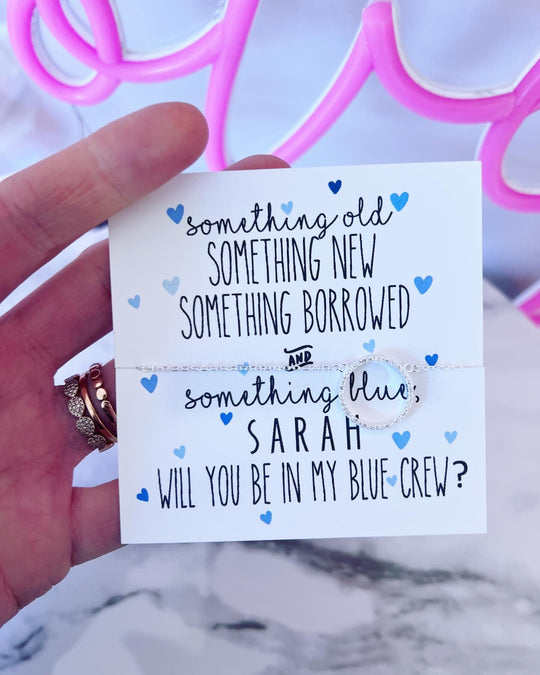 something old
SOMETHING NEW
SOMETHING BORROWED
AND
something blue,
SARAH
WILL YOU BE IN MY BLUE CREW?